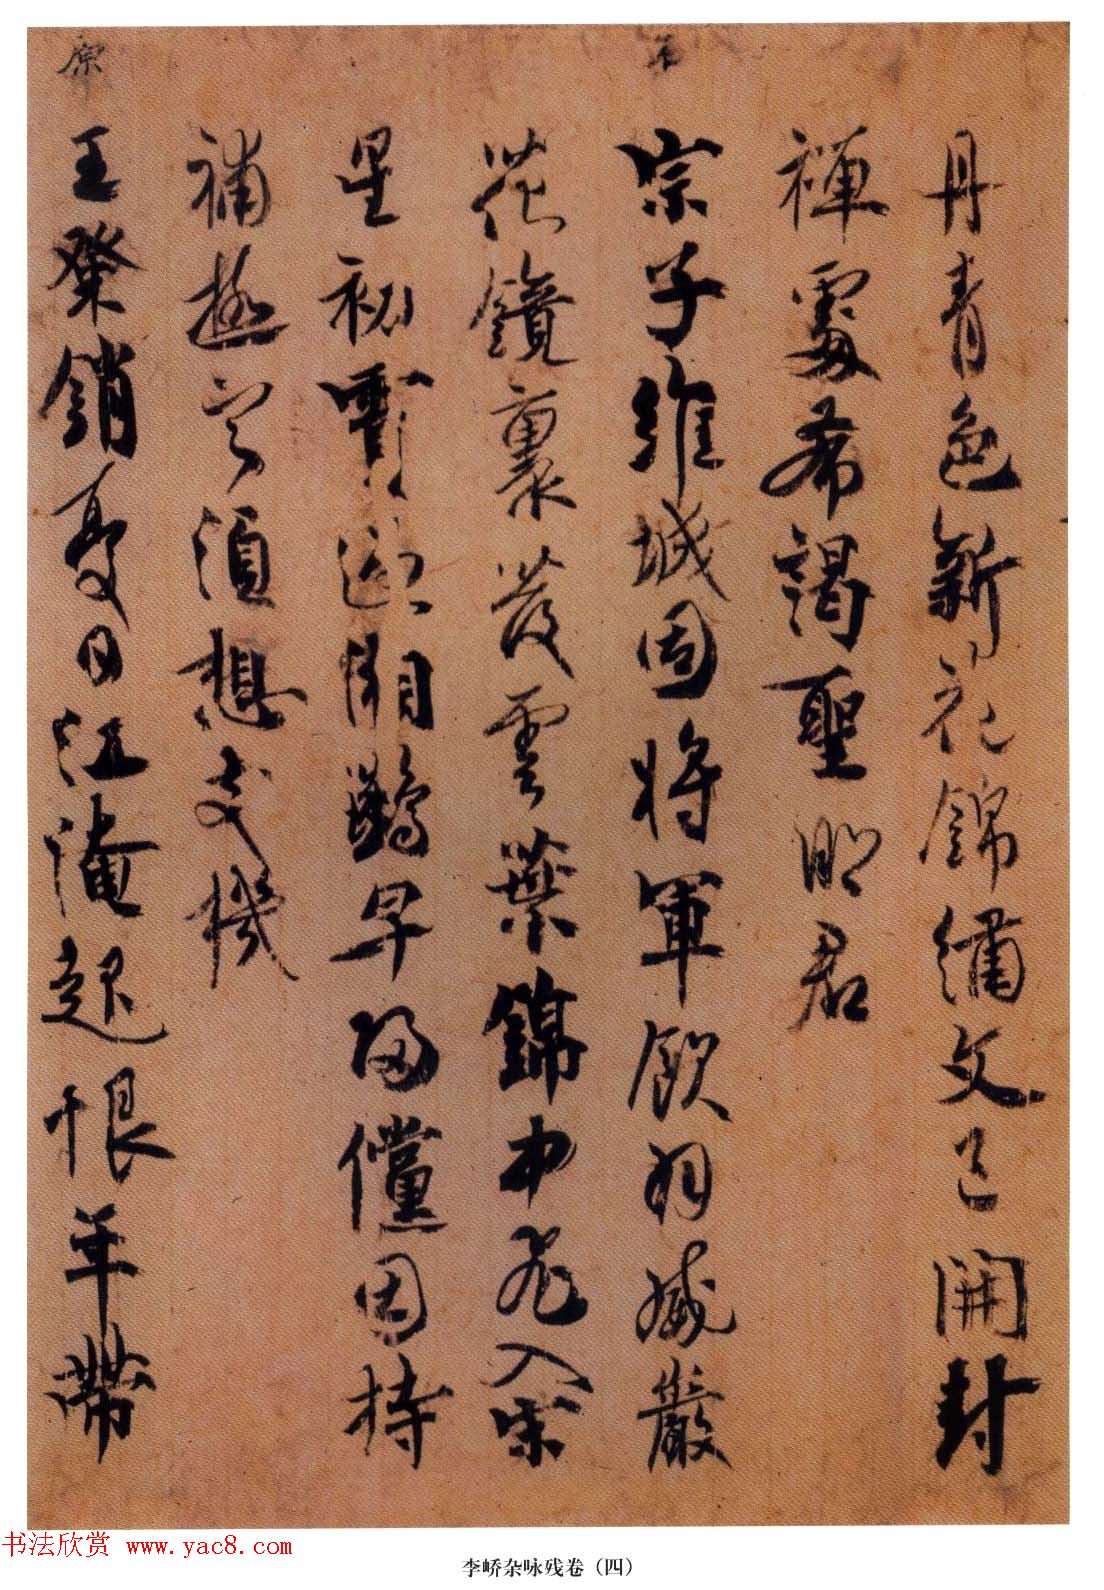 丹青色新花錦繡文已開封
禪處希謁聖明君
宗子維城固將軍飲羽威嚴
花鏡裏發雲葉錦中飛入宋
星初隕過湘鷁早歸儻因持
補極寧須想支機
玉粲銷憂日江淹起恨年帶
書法欣赏 www.yac8.com
李峤杂咏残卷（四）